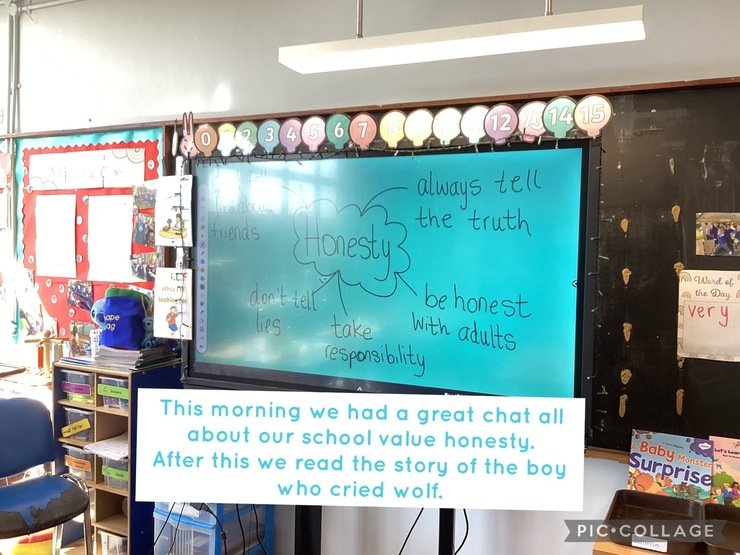 0 2 3 4 5 6 7 8 12 13 14 15
always tell
the truth
friends
Honesty
don't tell
lies
take
responsibility
be honest
with adults
Word of
the Day
very
Baby Monster
Surprise
This morning we had a great chat all
about our school value honesty.
After this we read the story of the boy
who cried wolf.
PIC•COLLAGE